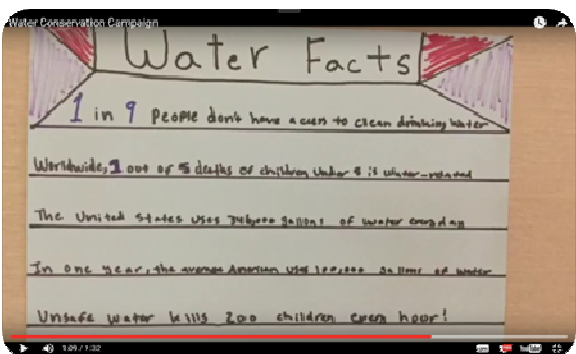 Water Conservation Campaign
Water Facts
1 in 9 People don't have access to clean drinking water
Worldwide, 1 out of 5 deaths of children under 5 is water-related
The United States uses gallons of water everyday
In one year, the average American uses 100,000 gallons of water
Unsafe water kills 200 children every hour!
1:09 / 1:32
YouTube